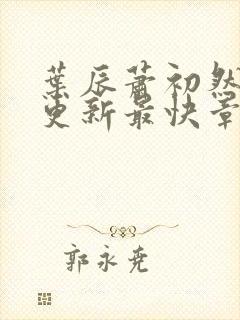 葉辰蕭初然
更新最快章
郭永尭